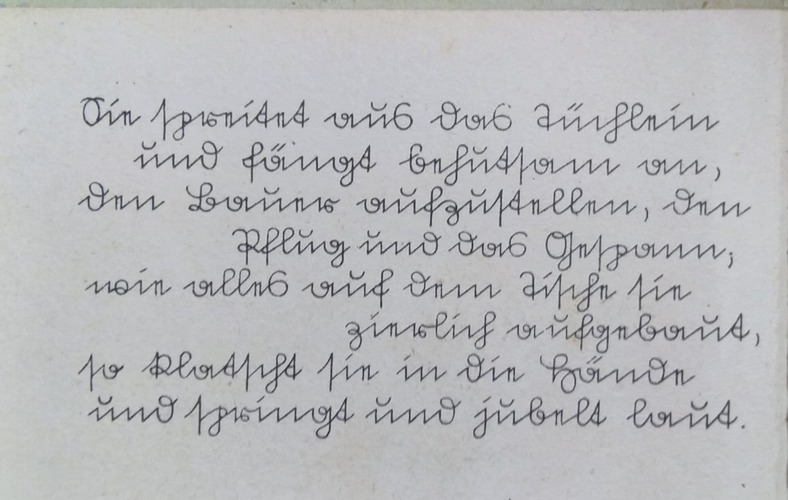 Sie spreitet aus das Tüchlein
und fängt behutsam an,
den Bauer aufzustellen, den
Pflug und das Gespann;
wie alles auf dem Tische sie
zierlich aufgebaut,
so klatscht sie in die Hände
und springt und jubelt laut.